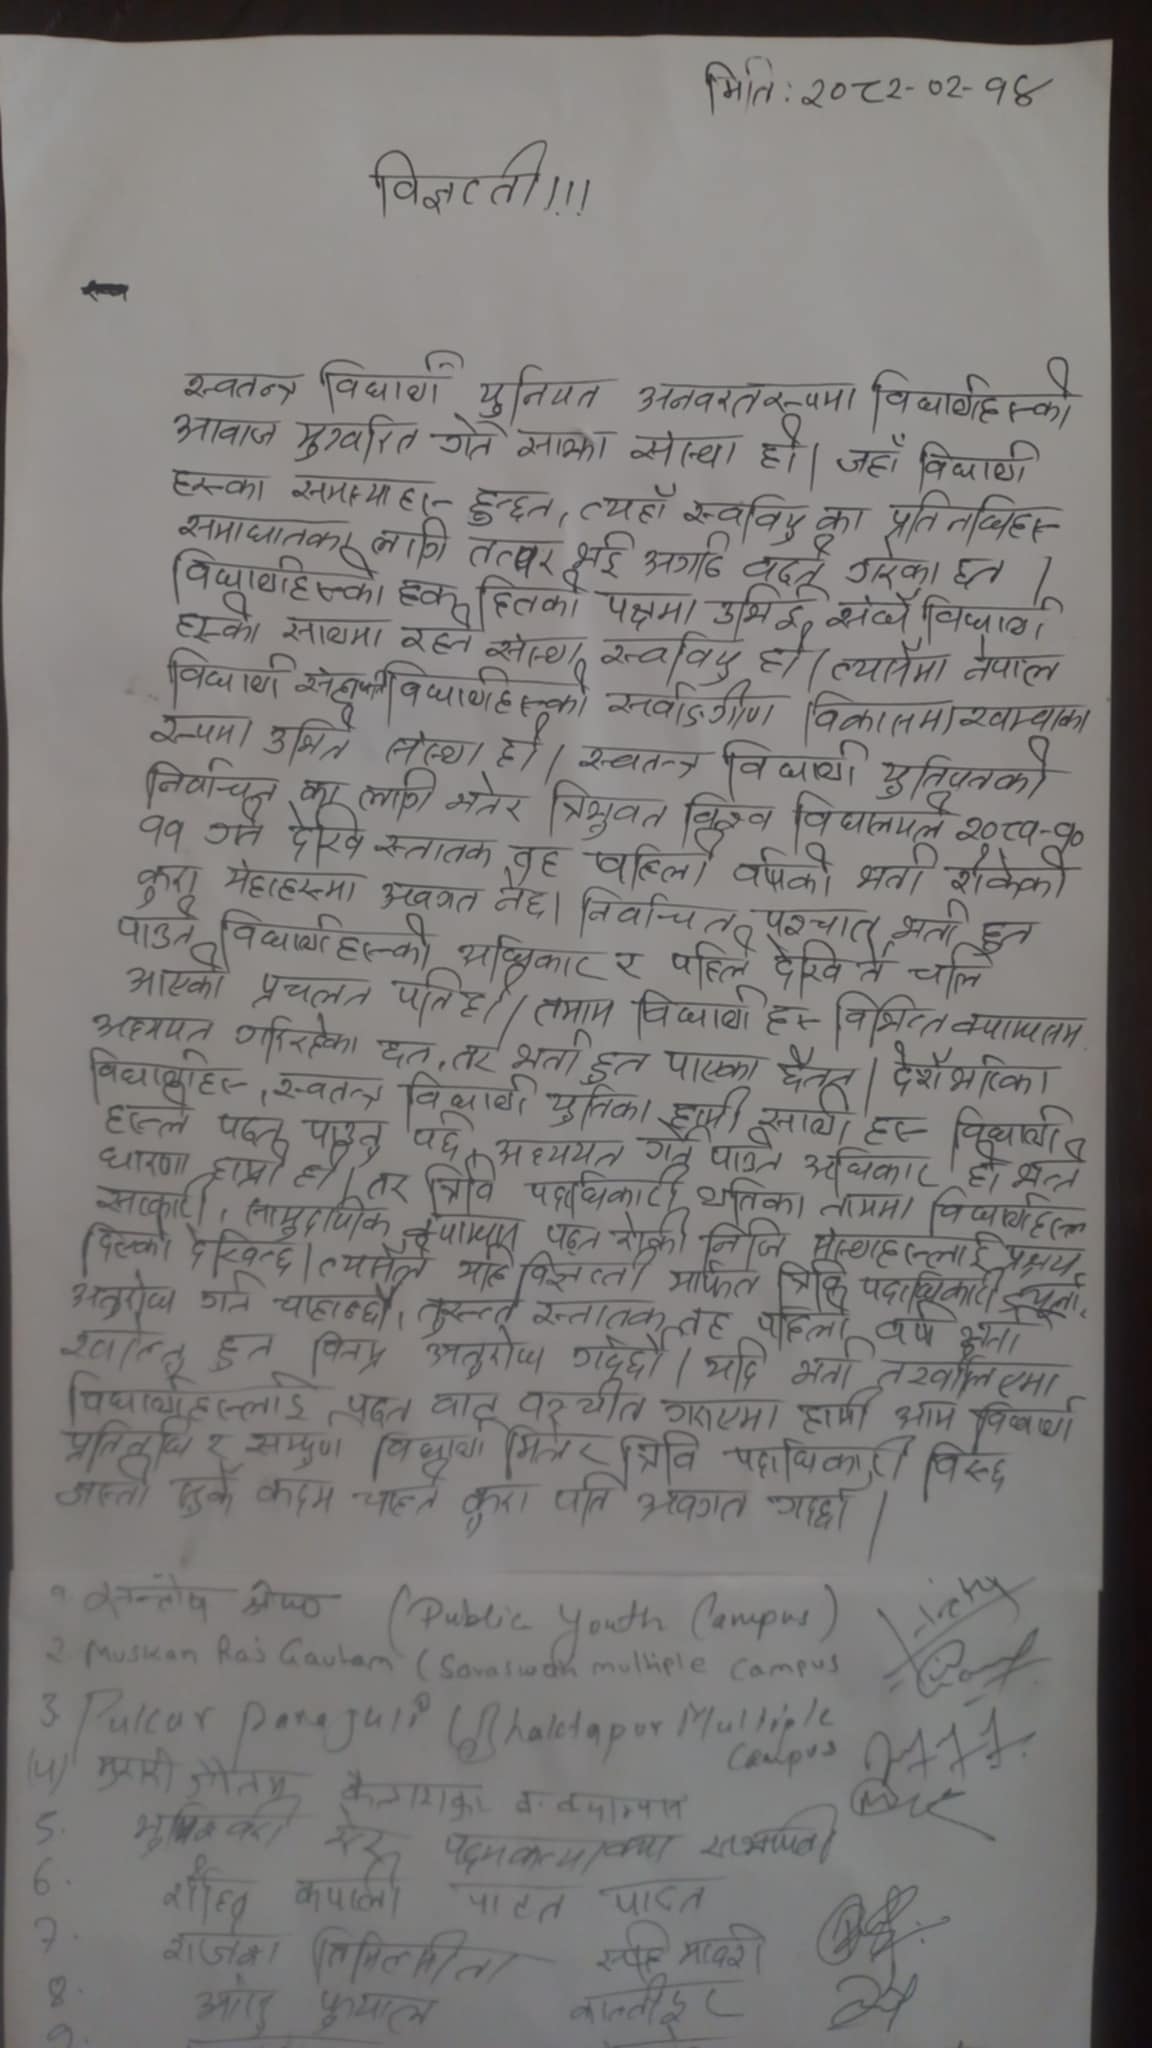 मिति: २०८२-०२-१४
विज्ञप्ती!!!
स्वतन्त्र विद्यार्थी युनियन अनवरतरूपमा विद्यार्थीहरूको
आवाज मुखरित गर्ने साझा संस्था हो। जहाँ विद्यार्थी
हरूका समस्याहरू हुन्छन, त्यहाँ स्ववियु का प्रतिनिधिहरू
समाधानका लागि तत्पर भई अगाडि बढ्नु गरेका छन।
विद्यार्थीहरूको हक हितको पक्षमा उभिई संधै विद्यार्थी
हरूको साथमा रहने संस्था स्ववियु हो। त्यसैमा नेपाल
विद्यार्थी विद्यार्थीहरूको सर्वाङगीण विकासमा खम्बाका
रूपमा उभिने संस्था हो। स्वतन्त्र विद्यार्थी युनियनको
निर्वाचन का लागि भनेर त्रिभुवन विश्व विद्यालयले २०८१-१०
११ गते देखि स्नातक तह पहिलो वर्षको भर्ना रोकेको
कुरा अवगत नैछ। निर्वाचन पश्चात भर्ना हुन
पाउने विद्यार्थीहरूको अधिकार र पहिले देखि नै चलि
आएको प्रचलन पनि हो। तमाम विद्यार्थी हरू विभिन्न क्याम्पसमा
अध्ययन गरिरहेका छन, तर भर्ना हुन पाएका छैनन। देशैभरिका
विद्यार्थीहरू, स्वतन्त्र विद्यार्थी युनिका हामी साथी हरू विद्यार्थी
हरूले पढ्न पाउनु पर्छ, अध्ययन गर्न पाउने अधिकार हो भन्ने
धारणा हाम्रो हो। तर त्रिवि पदाधिकारी विद्यार्थीहरूले
सरकारी, सामुदायिक क्याम्पस पढ्न रोकी निजि संस्थाहरूलाई
दिएको देखिन्छ। त्यसैले यहि विज्ञप्ती मार्फत त्रिवि पदाधिकारी
अनुरोध गर्न चाहान्छौ, तुरून्त स्नातक तह पहिलो वर्ष भर्ना
खोल्नु हुन विनम्र अनुरोध गर्दछौ। यदि भर्ना नखोलिएमा
विद्यार्थीहरूलाई पढ्न बाट वञ्चीत गराएमा हामी आम विद्यार्थी
प्रतिनिधि र सम्पुर्ण विद्यार्थी मिलेर त्रिवि पदाधिकारी विरुद्द
जस्तो सुकै कदम चाल्ने कुरा पनि अवगत गर्दछौ।
१. सन्तोष श्रेष्ठ (Public Youth Campus)
2. Muskan Raj Gautam (Saraswati multiple Campus
3. Pulkar Parajuli (Bhaktapur Multiple
Campus
(४) मुरारी गौतम
5.
6. रोहित कपाली पाटन
7.
8.
9.